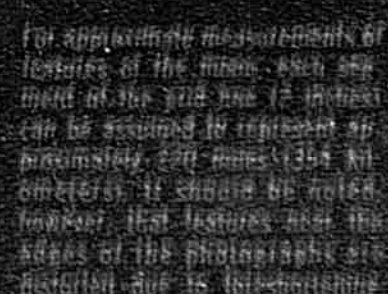 For approximate measurements of
features of the moon, each seg-
ment of the grid line (2 inches)
can be assumed to represent ap-
proximately miles kil-
ometers). It should be noted,
however, that features near the
edges of the photographs are
distorted due to foreshortening